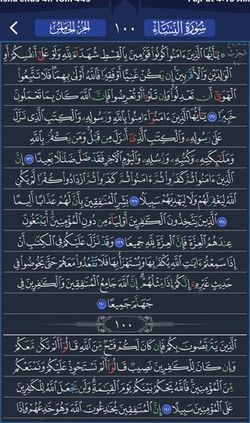 سُورَةُ النِّسَاءِ ١٠٠ الجُزْءُ الخَامِسُ
۞ يَٰٓأَيُّهَا ٱلَّذِينَ ءَامَنُوا۟ كُونُوا۟ قَوَّٰمِينَ بِٱلْقِسْطِ شُهَدَآءَ لِلَّهِ وَلَوْ عَلَىٰٓ أَنفُسِكُمْ أَوِ
ٱلْوَٰلِدَيْنِ وَٱلْأَقْرَبِينَ إِن يَكُنْ غَنِيًّا أَوْ فَقِيرًا فَٱللَّهُ أَوْلَىٰ بِهِمَا فَلَا تَتَّبِعُوا۟
ٱلْهَوَىٰٓ أَن تَعْدِلُوا۟ وَإِن تَلْوُۥٓا۟ أَوْ تُعْرِضُوا۟ فَإِنَّ ٱللَّهَ كَانَ بِمَا تَعْمَلُونَ
خَبِيرًا ١٣٥ يَٰٓأَيُّهَا ٱلَّذِينَ ءَامَنُوٓا۟ ءَامِنُوا۟ بِٱللَّهِ وَرَسُولِهِۦ وَٱلْكِتَٰبِ ٱلَّذِى نَزَّلَ
عَلَىٰ رَسُولِهِۦ وَٱلْكِتَٰبِ ٱلَّذِىٓ أَنزَلَ مِن قَبْلُ وَمَن يَكْفُرْ بِٱللَّهِ
وَمَلَٰٓئِكَتِهِۦ وَكُتُبِهِۦ وَرُسُلِهِۦ وَٱلْيَوْمِ ٱلْءَاخِرِ فَقَدْ ضَلَّ ضَلَٰلًۢا بَعِيدًا ١٣٦
إِنَّ ٱلَّذِينَ ءَامَنُوا۟ ثُمَّ كَفَرُوا۟ ثُمَّ ءَامَنُوا۟ ثُمَّ كَفَرُوا۟ ثُمَّ ٱزْدَادُوا۟ كُفْرًا لَّمْ يَكُنِ
ٱللَّهُ لِيَغْفِرَ لَهُمْ وَلَا لِيَهْدِيَهُمْ سَبِيلًۢا ١٣٧ بَشِّرِ ٱلْمُنَٰفِقِينَ بِأَنَّ لَهُمْ عَذَابًا أَلِيمًا
١٣٨ ٱلَّذِينَ يَتَّخِذُونَ ٱلْكَٰفِرِينَ أَوْلِيَآءَ مِن دُونِ ٱلْمُؤْمِنِينَ أَيَبْتَغُونَ
عِندَهُمُ ٱلْعِزَّةَ فَإِنَّ ٱلْعِزَّةَ لِلَّهِ جَمِيعًا ١٣٩ وَقَدْ نَزَّلَ عَلَيْكُمْ فِى ٱلْكِتَٰبِ أَنْ
إِذَا سَمِعْتُمْ ءَايَٰتِ ٱللَّهِ يُكْفَرُ بِهَا وَيُسْتَهْزَأُ بِهَا فَلَا تَقْعُدُوا۟ مَعَهُمْ حَتَّىٰ يَخُوضُوا۟ فِى
حَدِيثٍ غَيْرِهِۦٓ إِنَّكُمْ إِذًا مِّثْلُهُمْ إِنَّ ٱللَّهَ جَامِعُ ٱلْمُنَٰفِقِينَ وَٱلْكَٰفِرِينَ فِى
جَهَنَّمَ جَمِيعًا ١٤٠
١٠٠
ٱلَّذِينَ يَتَرَبَّصُونَ بِكُمْ فَإِن كَانَ لَكُمْ فَتْحٌ مِّنَ ٱللَّهِ قَالُوٓا۟ أَلَمْ نَكُن مَّعَكُمْ
وَإِن كَانَ لِلْكَٰفِرِينَ نَصِيبٌ قَالُوٓا۟ أَلَمْ نَسْتَحْوِذْ عَلَيْكُمْ وَنَمْنَعْكُم
مِّنَ ٱلْمُؤْمِنِينَ فَٱللَّهُ يَحْكُمُ بَيْنَكُمْ يَوْمَ ٱلْقِيَٰمَةِ وَلَن يَجْعَلَ ٱللَّهُ لِلْكَٰفِرِينَ
عَلَى ٱلْمُؤْمِنِينَ سَبِيلًا ١٤١ إِنَّ ٱلْمُنَٰفِقِينَ يُخَٰدِعُونَ ٱللَّهَ وَهُوَ خَٰدِعُهُمْ وَإِذَا